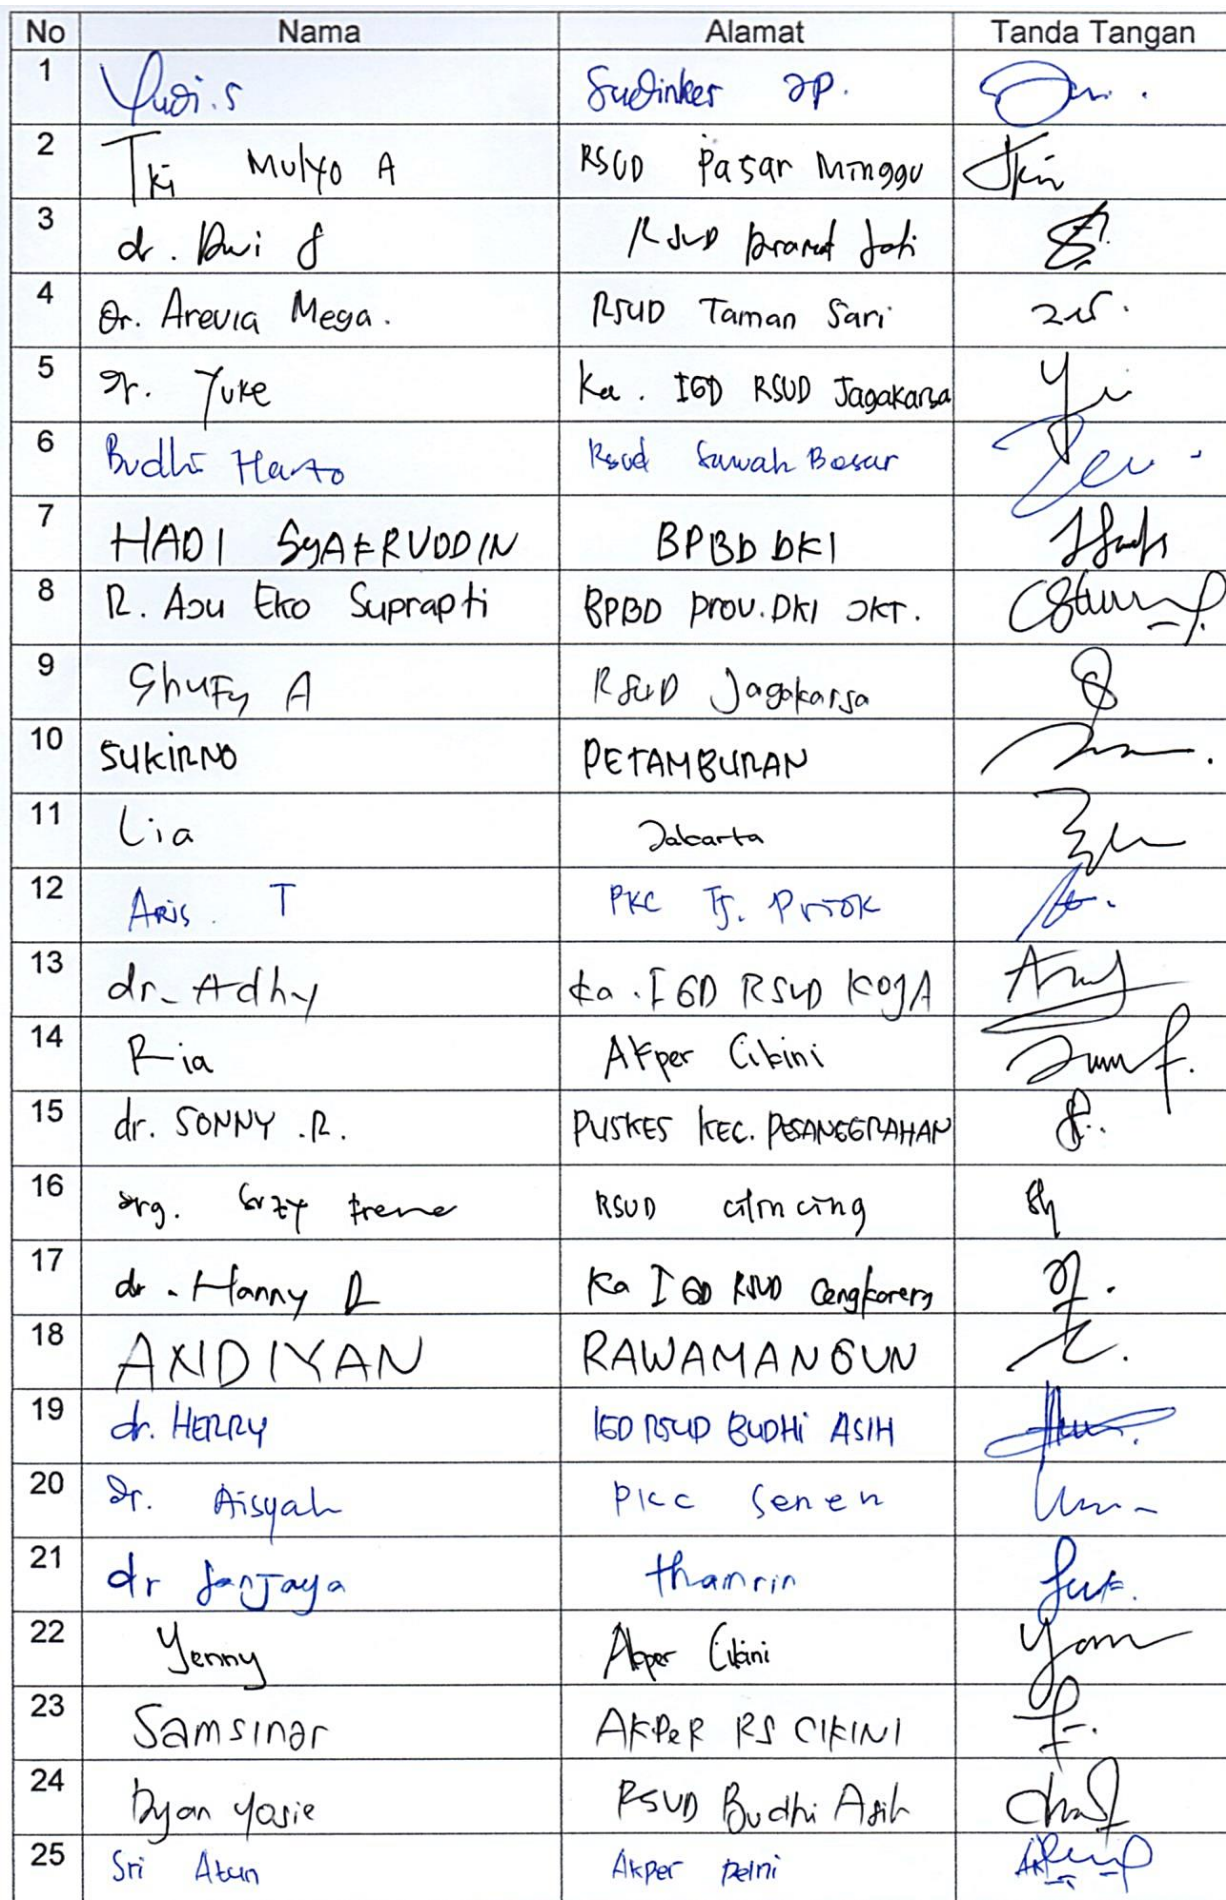 No Nama Alamat Tanda Tangan
1 Yudi.S Sudinkes JP.
2 Tki Mulyo A RSUD Pasar Minggu
3 dr. Dwi RSUD Kramat Jati
4 Dr. Arevia Mega. RSUD Taman Sari
5 Dr. Yuke Ka. IGD RSUD Jagakarsa
6 Budhi Harto Rsud Sawah Besar
7 HADI SyAFRUDDIN BPBD DKI
8 R. Asu Eko Suprapti BPBD Prov. DKI JKT.
9 Ghufy A RSUD Jagakarsa
10 SUKIRNO PETAMBURAN
11 Lia Jakarta
12 Aris. T PKC Tj. Priok
13 dr. Adhy Ka. IGD RSUD KOJA
14 Ria Akper Cikini
15 dr. SONNY .R. PUSKES KEC. PESANGGRAHAN
16 Drg. Irene RSUD cilincing
17 dr. Hanny R Ka IGD RSUD Cengkareng
18 ANDIYAN RAWAMANGUN
19 dr. HERRY IGD RSUD BUDHI ASIH
20 Dr. Aisyah PKC Senen
21 dr Sanjaya thamrin
22 Yenny Akper Cikini
23 Samsinar AKPeR RS CIKINI
24 Dyan Yosie RSUD Budhi Asih
25 Sri Atun Akper Pelni